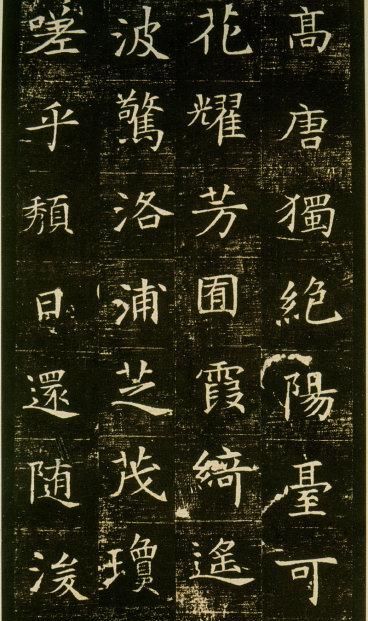 髙唐獨絶陽臺可
花耀芳囿霞綺遙
波驚洛浦芝茂瓊
嗟乎頽日還随浚